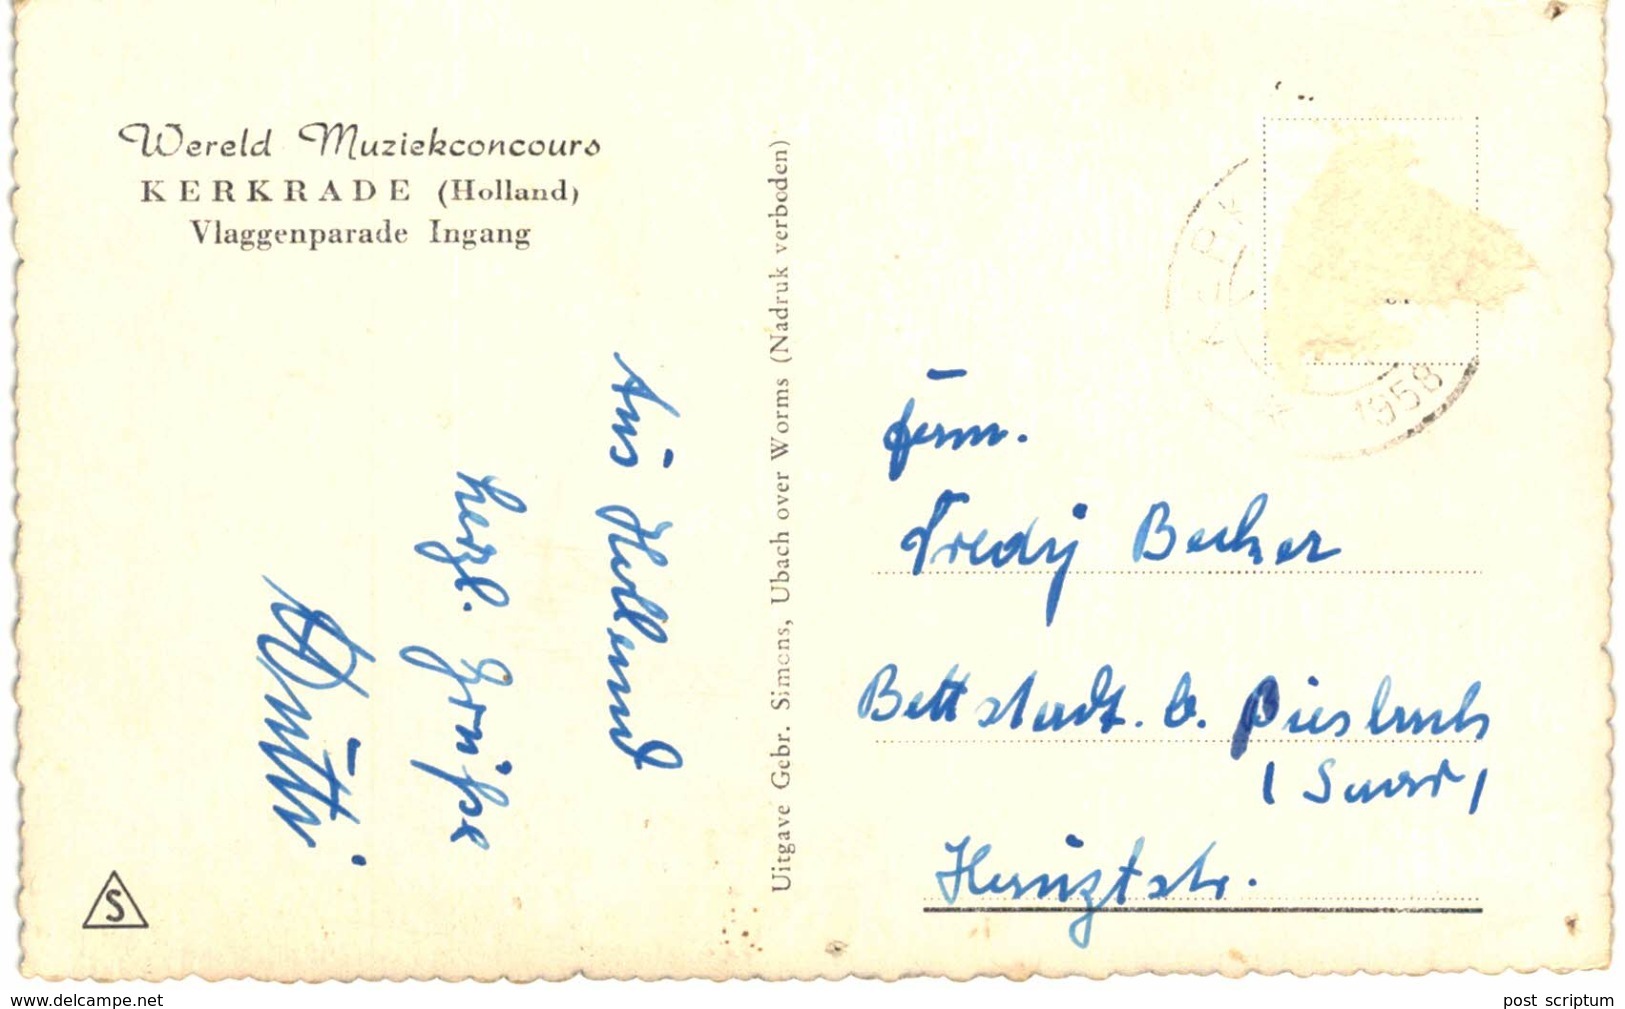 Wereld Muziekconcours
KERKRADE (Holland)
Vlaggenparade Ingang
Aus Holland
herzl. Grüße
Mutti.
S
Uitgave Gebr. Simons, Ubach over Worms (Nadruk verboden)
KERK
1958
Fam.
Fredy Becker
Bettstadt. b. Biesbach
(Saar)
Hauptstr.
www.delcampe.net
post scriptum